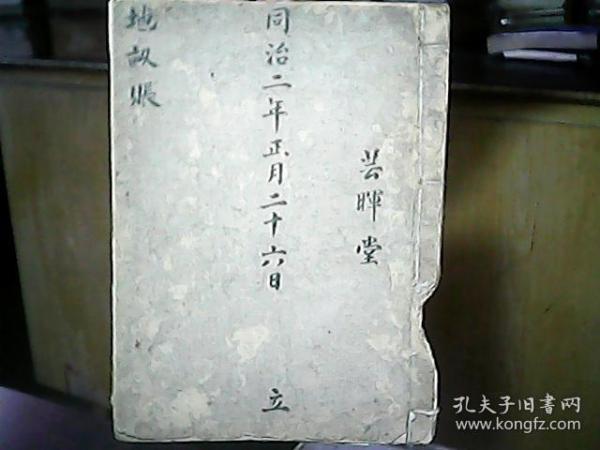 芸暉堂
同治二年正月二十六日 立
地畝賬
孔夫子旧書网
www.kongfz.com